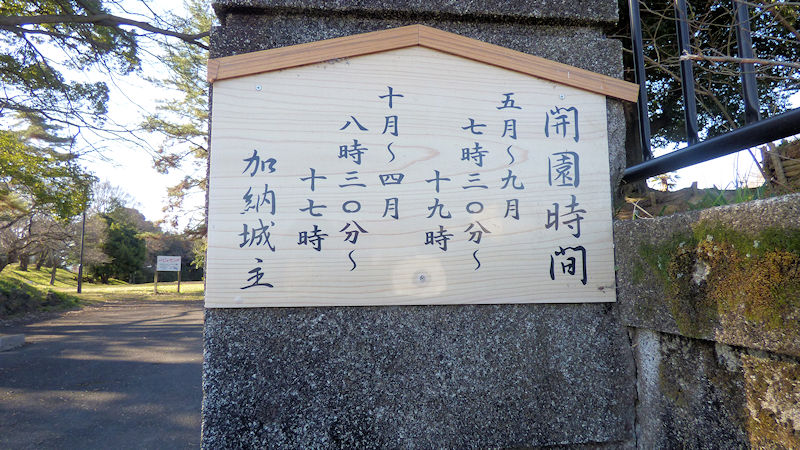 開園時間
五月～九月
七時三〇分～
十九時
十月～四月
八時三〇分～
十七時
加納城主